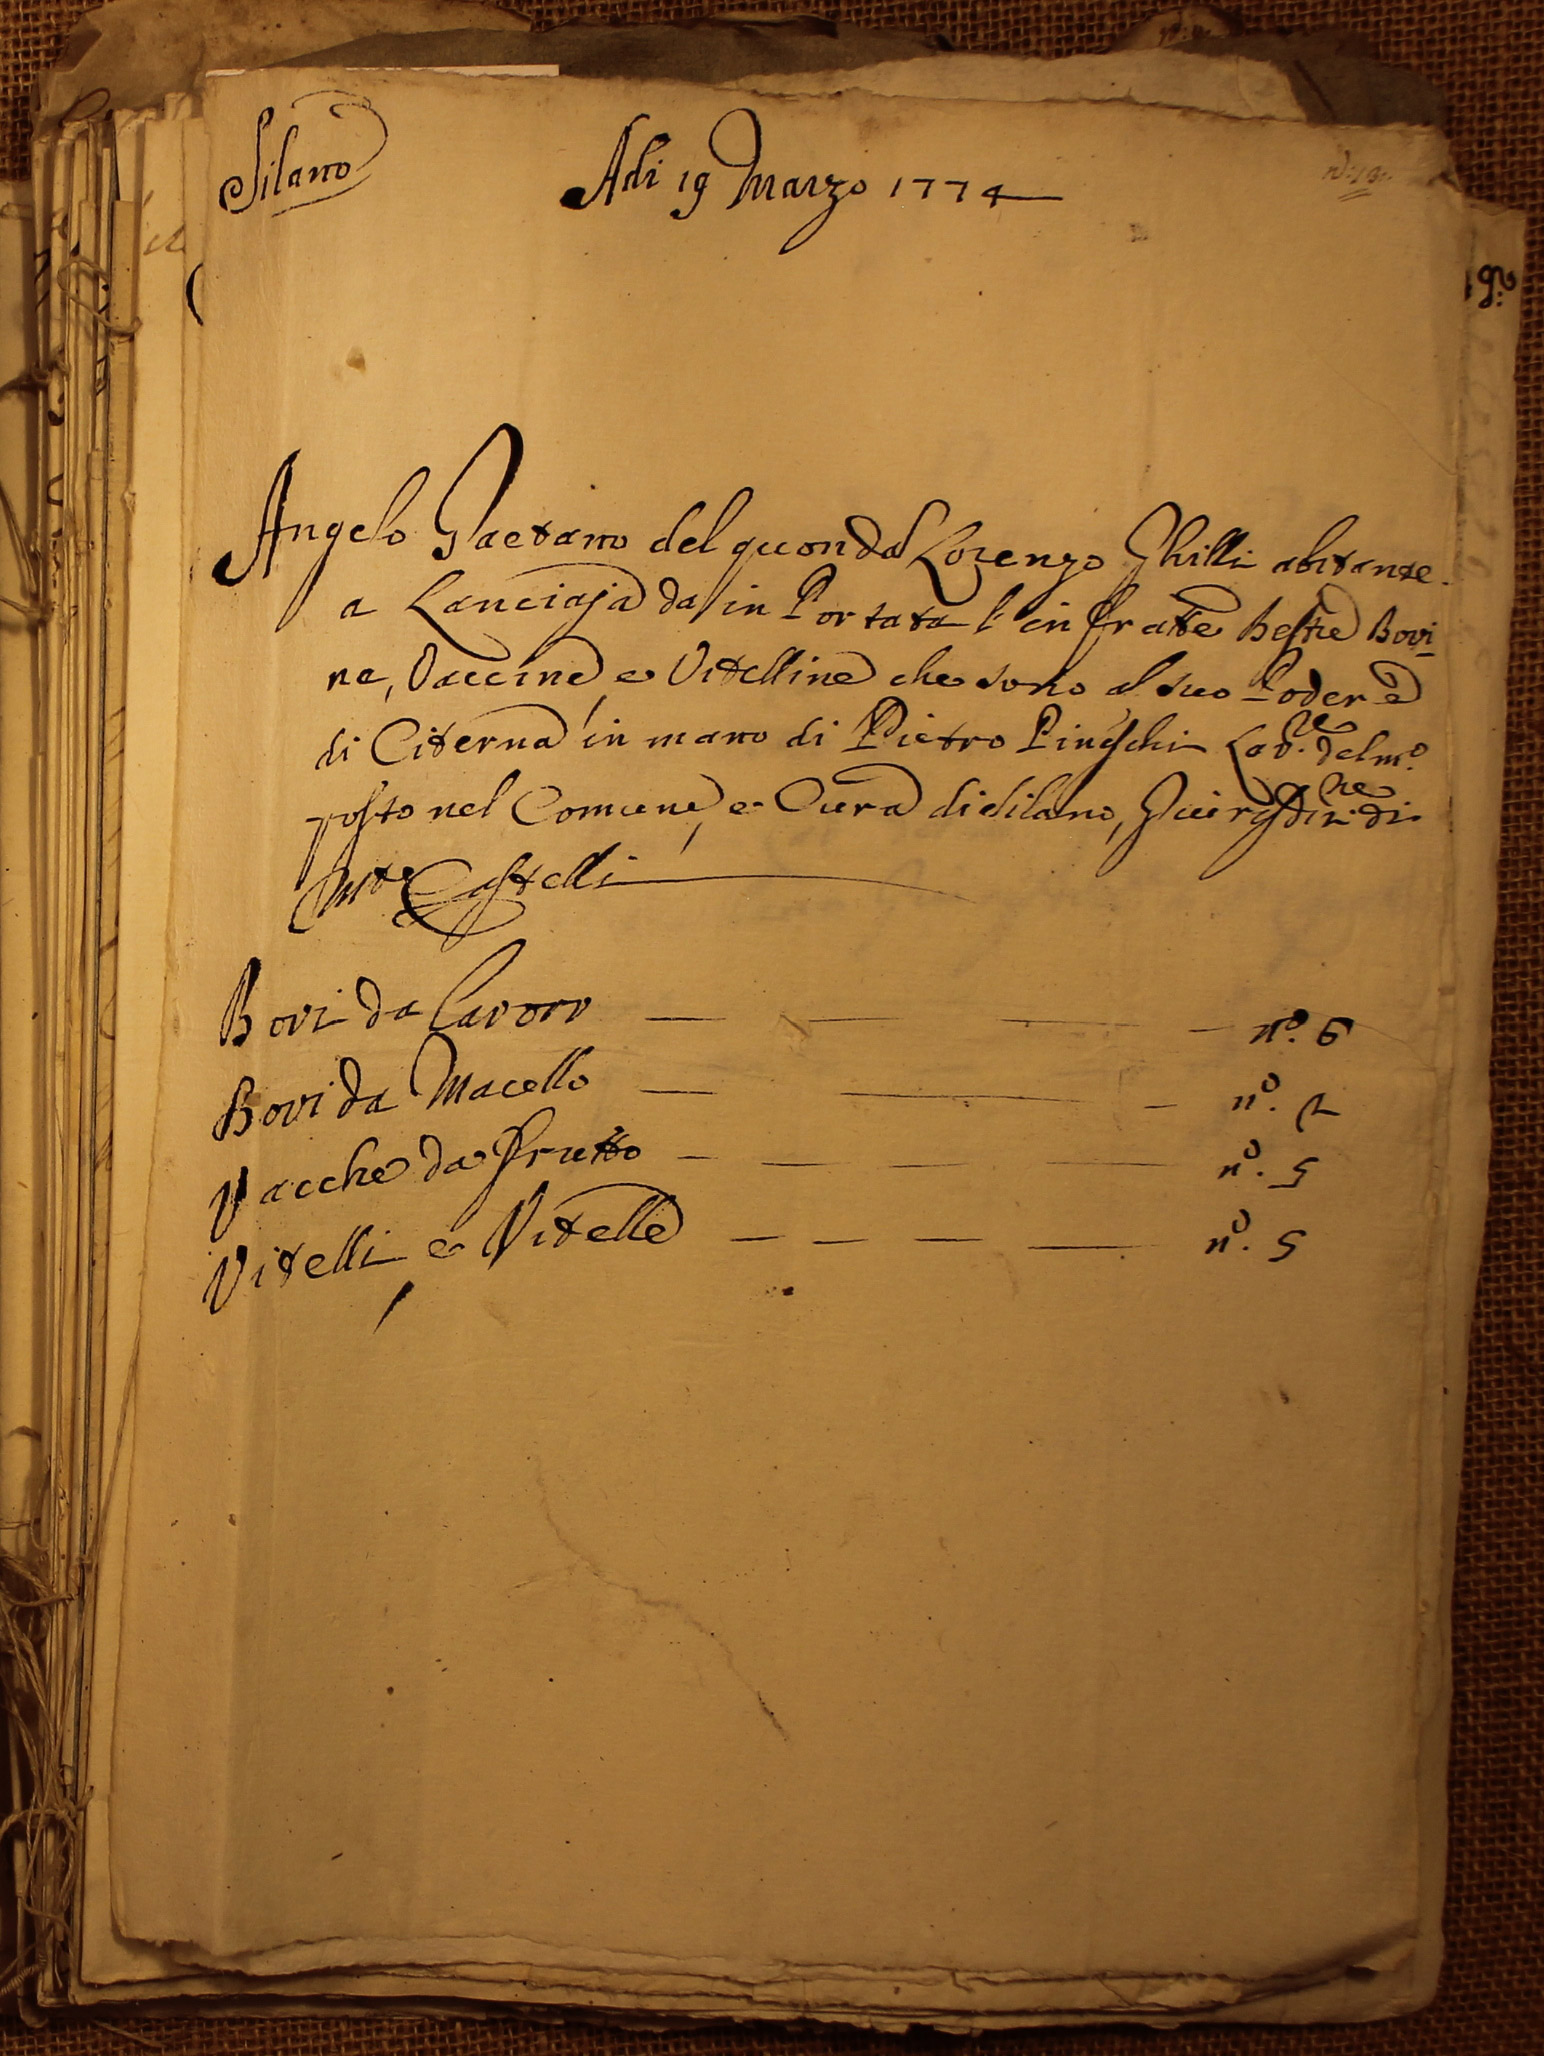 Silano
Adi 19 Marzo 1774
Angelo Gaetano del quondā Lorenzo Ghilli abitante
a Lanciaja da in Portata l'infratte Bestie Bovi-
ne, Vaccine, e Vitelline che sono al suo Podere
di Citerna in mano di Pietro Pineschi Lav.re del m.o
posto nel Comune, e Cura di Silano, Giurisdiz.ne di
Mte Castelli
Bovi da Lavoro — — — — n.o 6
Bovi da Macello — — — n.o
Vacche da Frutto — — — — n.o 5
Vitelli, e Vitelle — — — — n.o 5